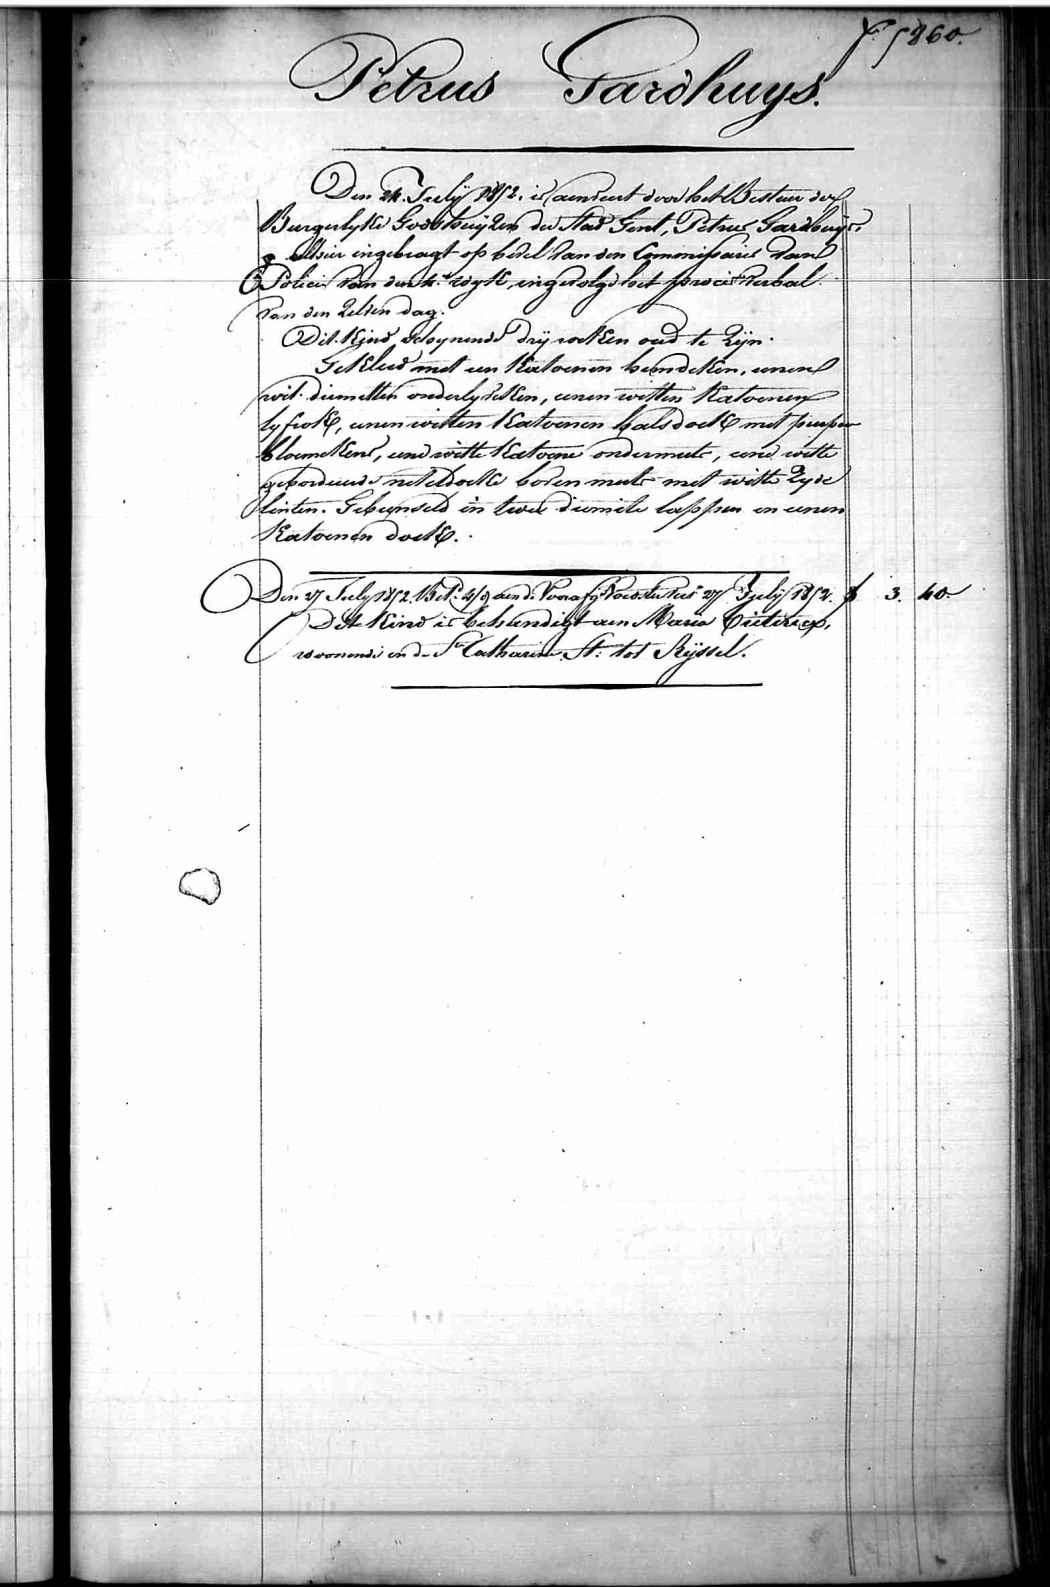 f. 5860.
Petrus Gardhuys.
Den 24. July 1852. is aenveert door het Bestuer der
Burgerlyke Godshuyzen der Stad Gent, Petrus Gardhuys,
alhier ingebragt op bevel van den Commissaris van
Policie van den 4.e wyk, ingevolge het proces verbael
van den zelven dag.
Dit kind schynende dry weken oud te zyn.
Gekleed met een katoenen hemdeken, eenen
wit diemitten onderlyveken, eenen witten katoenen
lyfrok, eenen witten katoenen halsdoek met purper
bloemekens, eene witte katoene ondermuts, eene witte
geborduerde neteldoeke bovenmuts met witte zyde
linten. Gebunseld in twee diemite lappen en eenen
katoenen doek.
Den 27 July 1852. Bet. aen de 27 July 1852. f 3. 40
Dit kind is behandigt aen Maria
woonende in de S.te Catharine St: tot Ryssel.